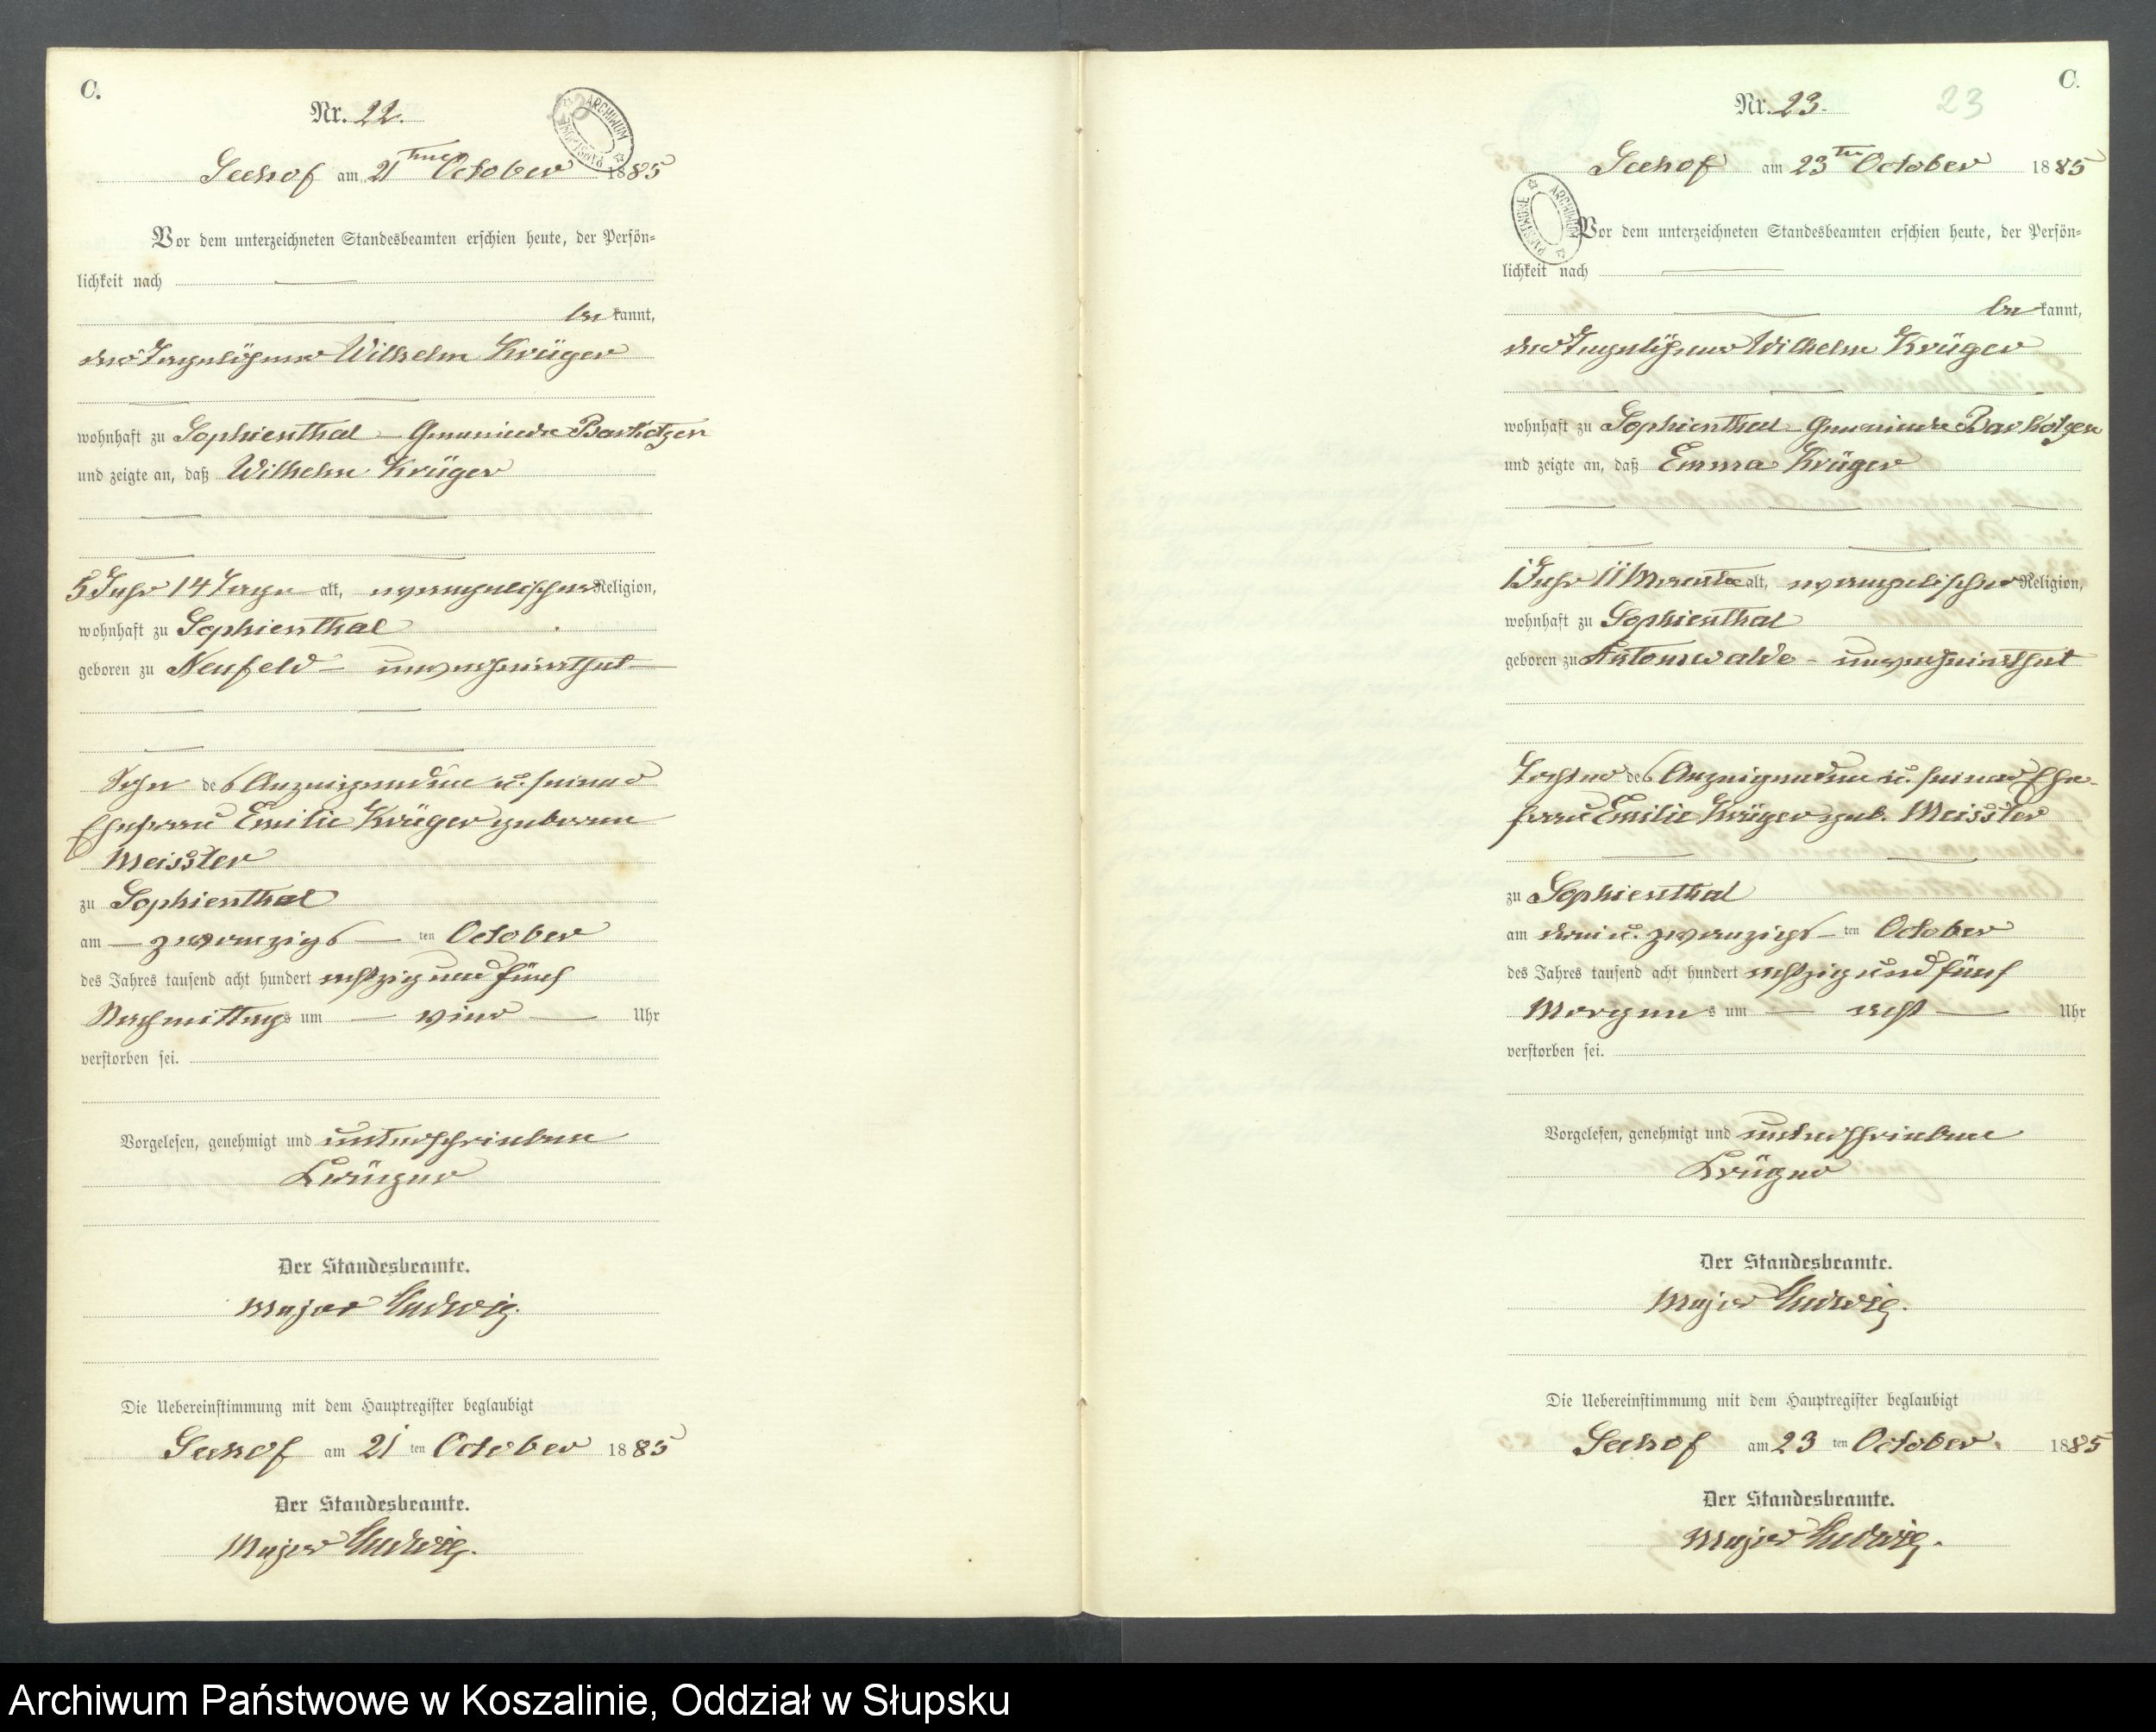 C.
Nr. 22.
ARCHIWUM PAŃSTWOWE
Seehof am 21ten October 1885
Vor dem unterzeichneten Standesbeamten erschien heute, der Persön=
lichkeit nach
be kannt,
der Tagelöhner Wilhelm Krüger
wohnhaft zu Sophienthal - Gemeinde Barkotzen
und zeigte an, daß Wilhelm Krüger
5 Jahr 14 Tage alt, evangelischer Religion,
wohnhaft zu Sophienthal
geboren zu Neufeld - unverheirathet
Sohn des Anzeigenden u. seiner
Ehefrau Emilie Krüger geborene
Meisster
zu Sophienthal
am zwanzigsten October
des Jahres tausend acht hundert achtzig und fünf
Nachmittags um vier Uhr
verstorben sei.
Vorgelesen, genehmigt und unterschrieben
Krüger
Der Standesbeamte.
Major Ludwig.
Die Uebereinstimmung mit dem Hauptregister beglaubigt
Seehof am 21 ten October 1885
Der Standesbeamte.
Major Ludwig.
C.
Nr. 23.
23
ARCHIWUM PAŃSTWOWE
Seehof am 23ten October 1885
Vor dem unterzeichneten Standesbeamten erschien heute, der Persön=
lichkeit nach
be kannt,
der Tagelöhner Wilhelm Krüger
wohnhaft zu Sophienthal - Gemeinde Barkotzen
und zeigte an, daß Emma Krüger
1 Jahr 11 Monate alt, evangelischer Religion,
wohnhaft zu Sophienthal
geboren zu Antonswalde - unverheirathet
Tochter des Anzeigenden u. seiner Ehe-
frau Emilie Krüger geb. Meisster
zu Sophienthal
am drei u. zwanzigsten October
des Jahres tausend acht hundert achtzig und fünf
Morgens um acht Uhr
verstorben sei.
Vorgelesen, genehmigt und unterschrieben
Krüger
Der Standesbeamte.
Major Ludwig.
Die Uebereinstimmung mit dem Hauptregister beglaubigt
Seehof am 23 ten October. 1885
Der Standesbeamte.
Major Ludwig.
Archiwum Państwowe w Koszalinie, Oddział w Słupsku